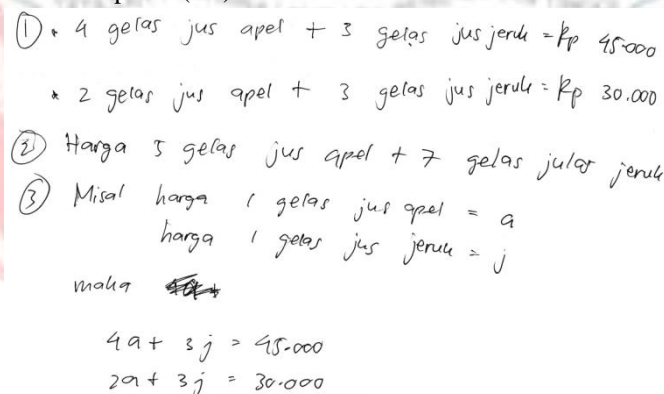 ① • 4 gelas jus apel + 3 gelas jus jeruk = Rp 45.000
* 2 gelas jus apel + 3 gelas jus jeruk = Rp 30.000
② Harga 5 gelas jus apel + 7 gelas jular jeruk
③ Misal harga 1 gelas jus apel = a
harga 1 gelas jus jeruk = j
maka
4a + 3j = 45.000
2a + 3j = 30.000